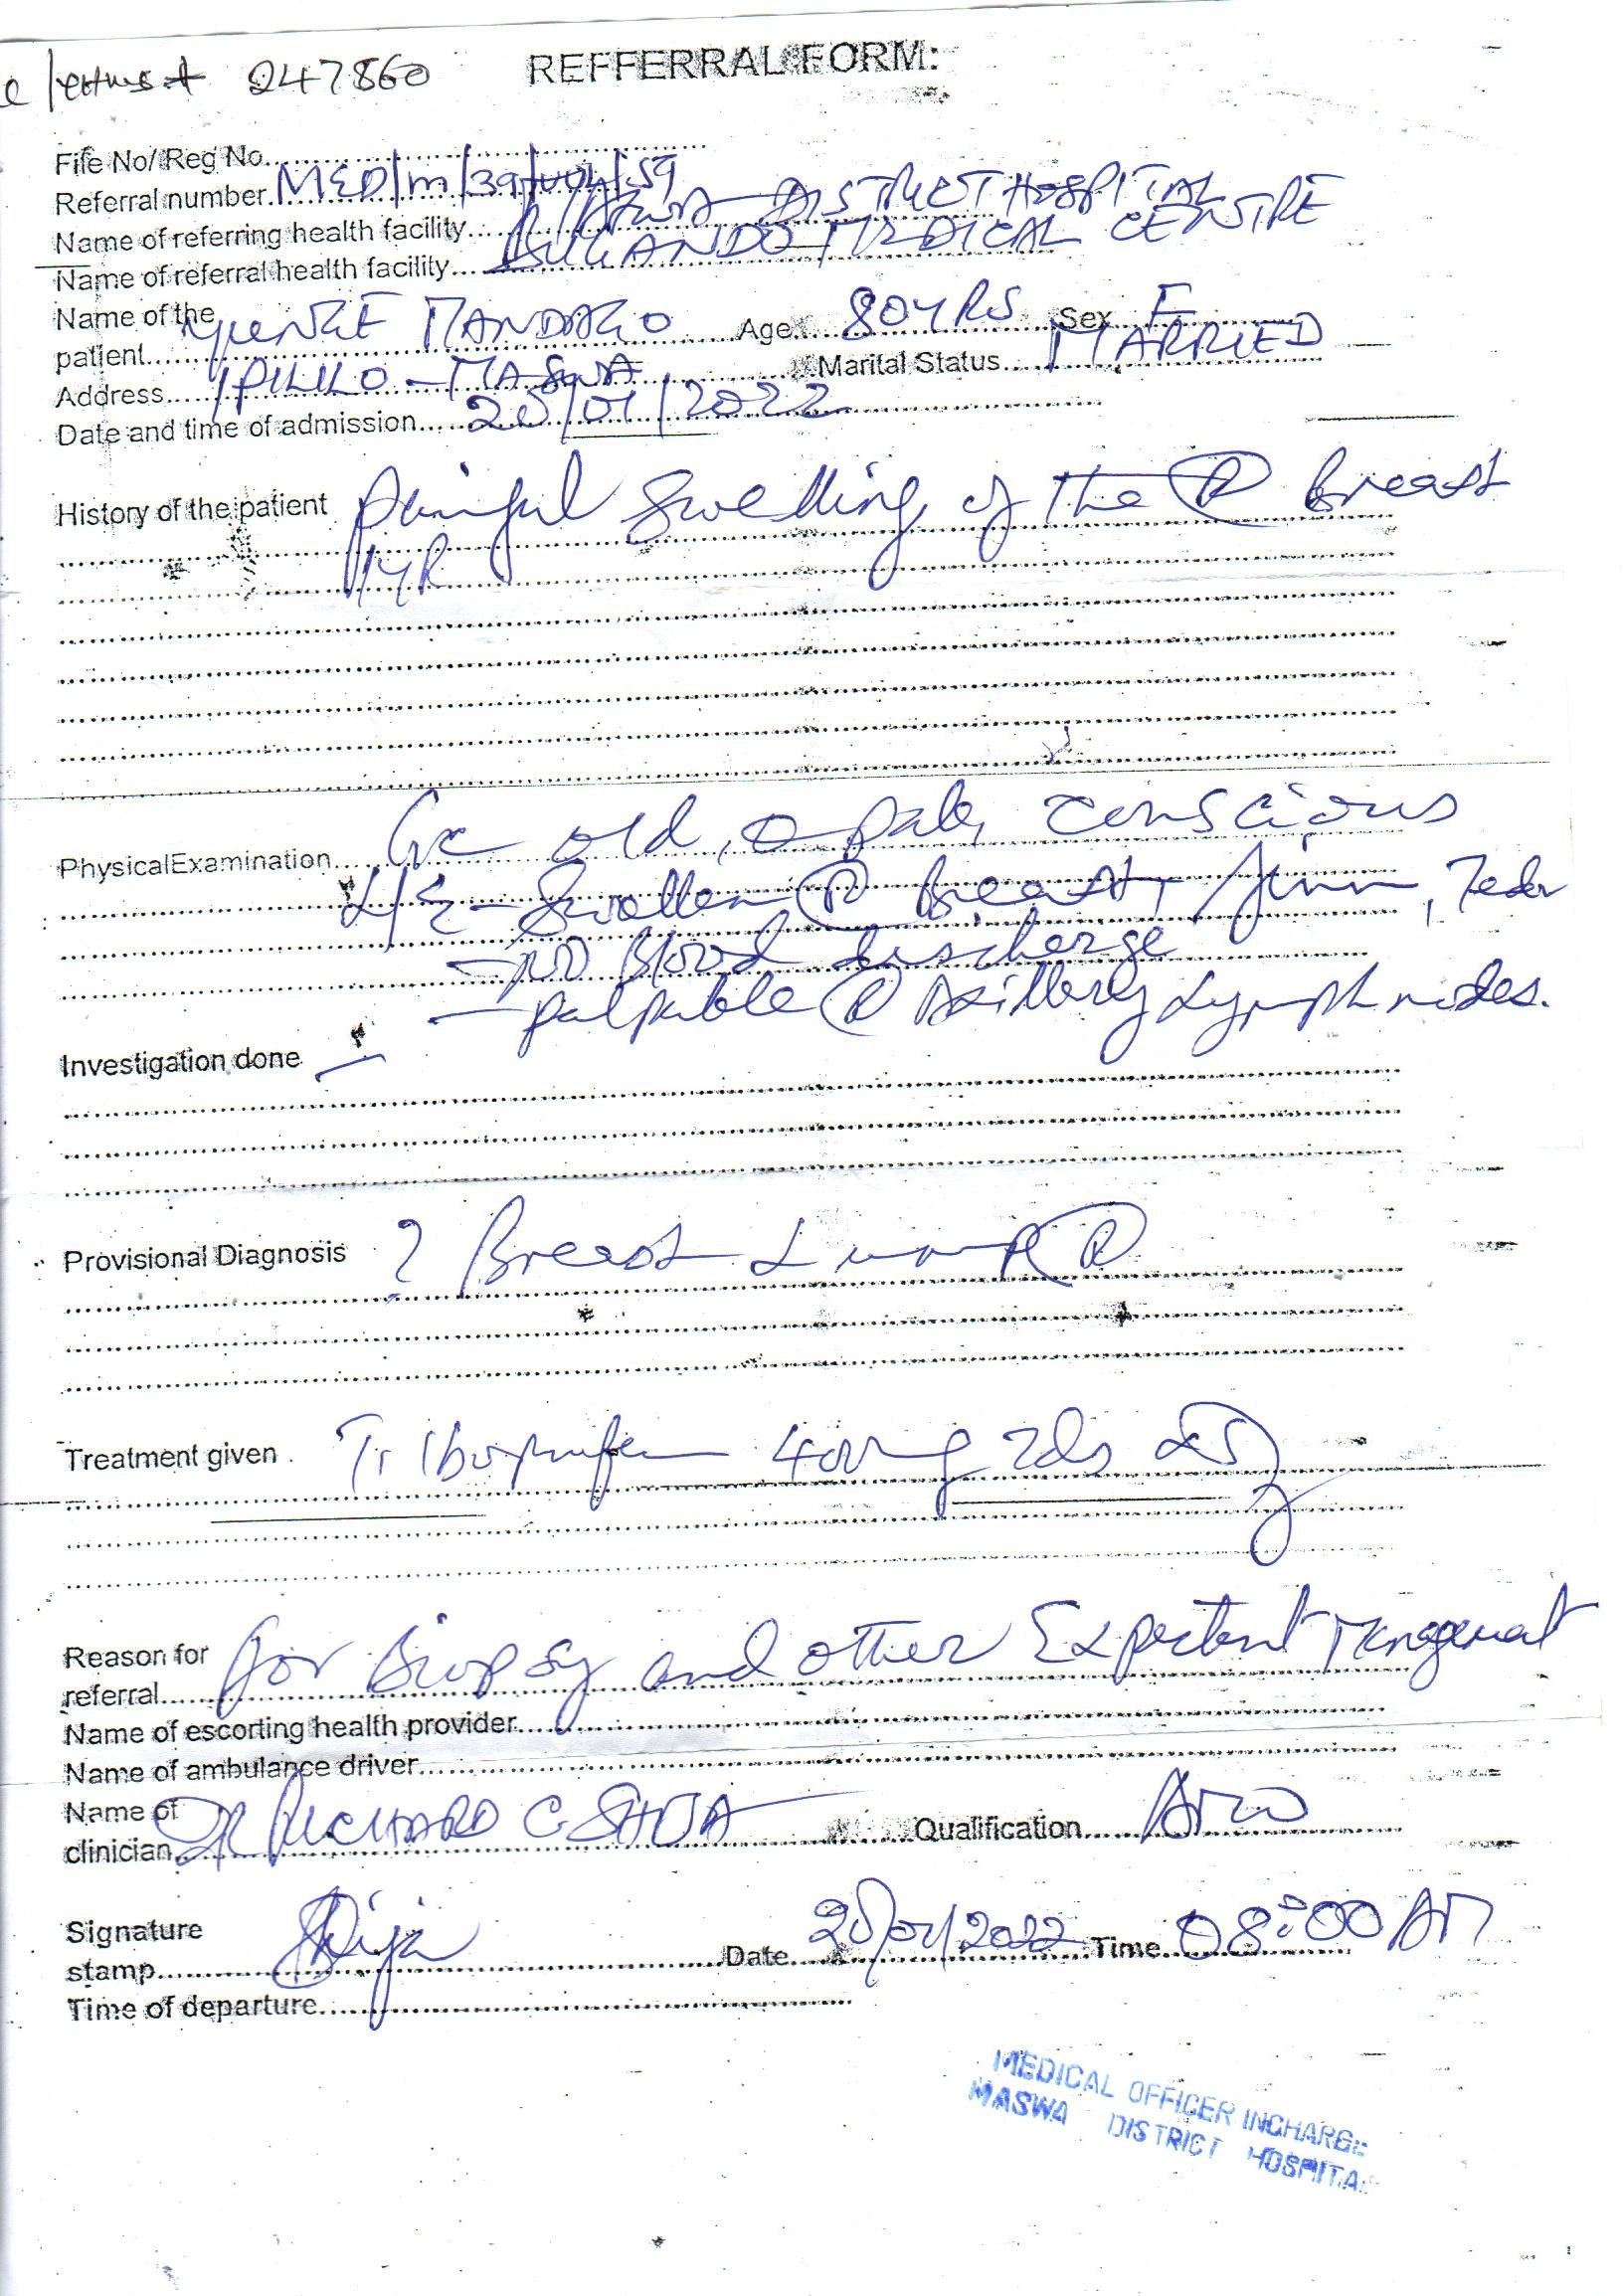 247860
REFFERRAL FORM:
File No/ Reg No
Referral number MED/m/39/v04/59
Name of referring health facility MASWA DISTRICT HOSPITAL
Name of referral health facility BUGANDO MEDICAL CENTRE
Name of the
patient MANDAGO Age 80YRS Sex F
Address IPILILO - MASWA Marital Status MARRIED
Date and time of admission /01/2022
History of the patient Painful Swelling of the (R) Breast
1YR
Physical Examination old, pale, conscious
L/E - Swollen (R) Breast, firm, Teder
- NO Blood discharge
- palpable (R) Axillary Lymph nodes.
Investigation done -
Provisional Diagnosis ? Breast Lump (R)
Treatment given T. Ibuprufen 400mg
Reason for
referral for Biopsy and other Expectant Management
Name of escorting health provider
Name of ambulance driver
Name of
clinician DR RICHARD C Qualification AMO
Signature
stamp Date /2022 Time 08:00 AM
Time of departure
MEDICAL OFFICER INCHARGE
MASWA DISTRICT HOSPITAL